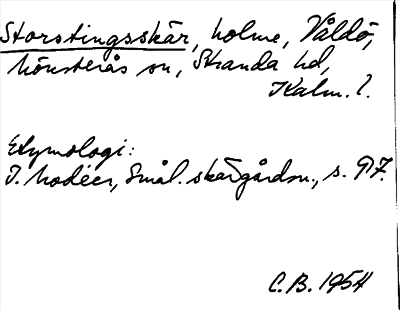 Storstingsskär, holme, Våldö,
Mönsterås sn, Stranda hd,
Kalm. l.
Etymologi:
I. Modéer, Smål. skärgårdsn., s. 97.
C.B. 1954